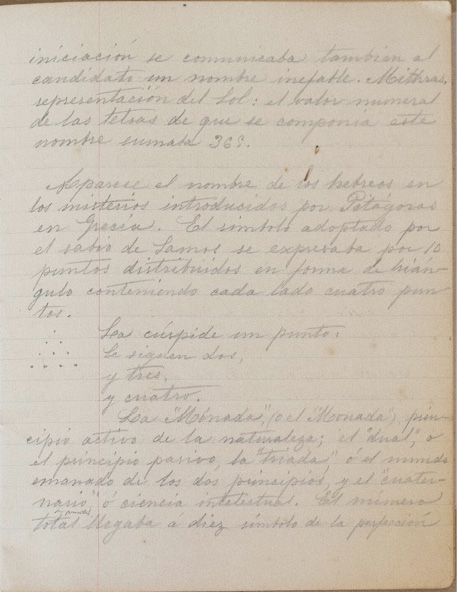 iniciación se comunicaba tambien al
candidato un nombre inefable. Mithras,
representación del Sol: el valor numeral
de las letras de que se componia este
nombre sumaba 365.
Aparece el nombre de los hebreos en
los misterios introducidos por Pitágoras
en Grecia. El símbolo adoptado por
el sabio de Samos se expresaba por 10
puntos distribuidos en forma de trián-
gulo conteniendo cada lado cuatro pun-
tos.
La cúspide un punto:
Le siguen dos,
y tres,
y cuatro.
La "Mónada", o el "Monada", prin-
cipio activo de la naturaleza; el "dual", o
el principio pasivo, la "triada" ó el mundo
emanado de los dos principios, y el "cuater-
nario" ó ciencia intelectual. El número
total llegaba á diez símbolo de la perfección